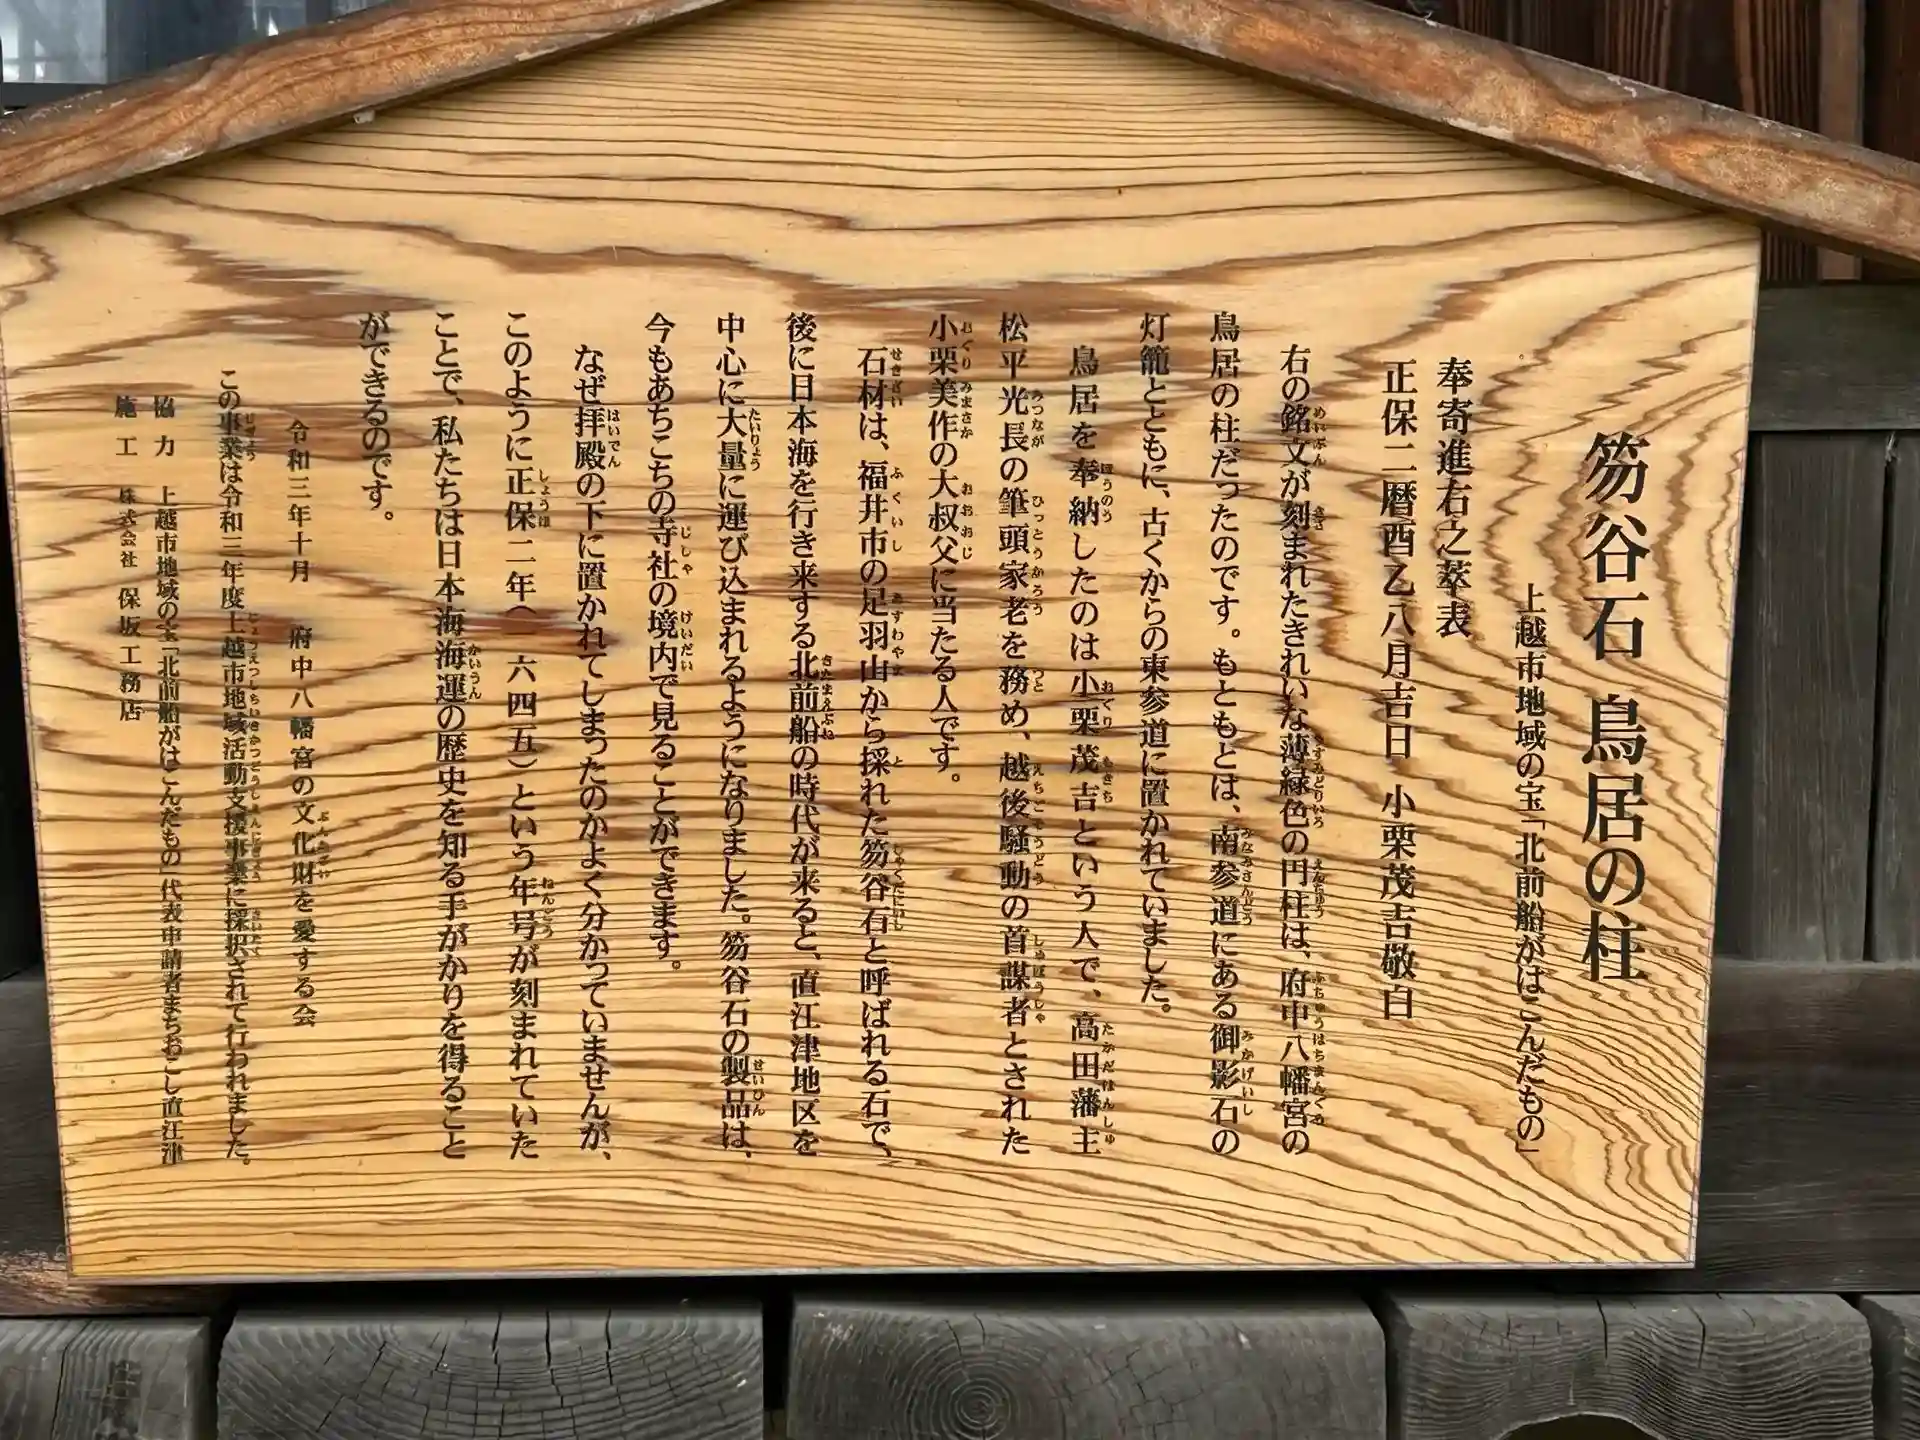 笏谷石 鳥居の柱
上越市地域の宝「北前船がはこんだもの」
奉寄進右之萃表
正保二暦酉乙八月吉日 小栗茂吉敬白
右の銘文が刻まれたきれいな薄緑色の円柱は、府中八幡宮の
鳥居の柱だったのです。もともとは、南参道にある御影石の
灯籠とともに、古くからの東参道に置かれていました。
鳥居を奉納したのは小栗茂吉という人で、高田藩主
松平光長の筆頭家老を務め、越後騒動の首謀者とされた
小栗美作の大叔父に当たる人です。
石材は、福井市の足羽山から採れた笏谷石と呼ばれる石で、
後に日本海を行き来する北前船の時代が来ると、直江津地区を
中心に大量に運び込まれるようになりました。笏谷石の製品は、
今もあちこちの寺社の境内で見ることができます。
なぜ拝殿の下に置かれてしまったのかよく分かっていませんが、
このように正保二年(一六四五)という年号が刻まれていた
ことで、私たちは日本海海運の歴史を知る手がかりを得ること
ができるのです。
令和三年十月 府中八幡宮の文化財を愛する会
この事業は令和三年度上越市地域活動支援事業に採択されて行われました。
協力 上越市地域の宝「北前船がはこんだもの」代表申請者まちおこし直江津
施工 株式会社 保坂工務店